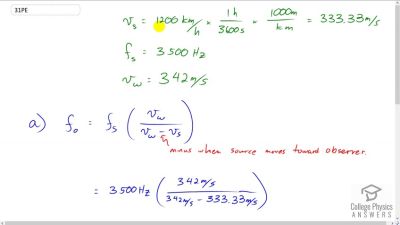 31PE
v_s = 1200 km/h × 1h/3600s × 1000m/km = 333.33 m/s
f_s = 3500 Hz
v_w = 342 m/s
a) f_o = f_s ( v_w / v_w − v_s )
minus when source moves toward observer.
= 3500 Hz ( 342 m/s / 342 m/s − 333.33 m/s )
College Physics
ANSWERS